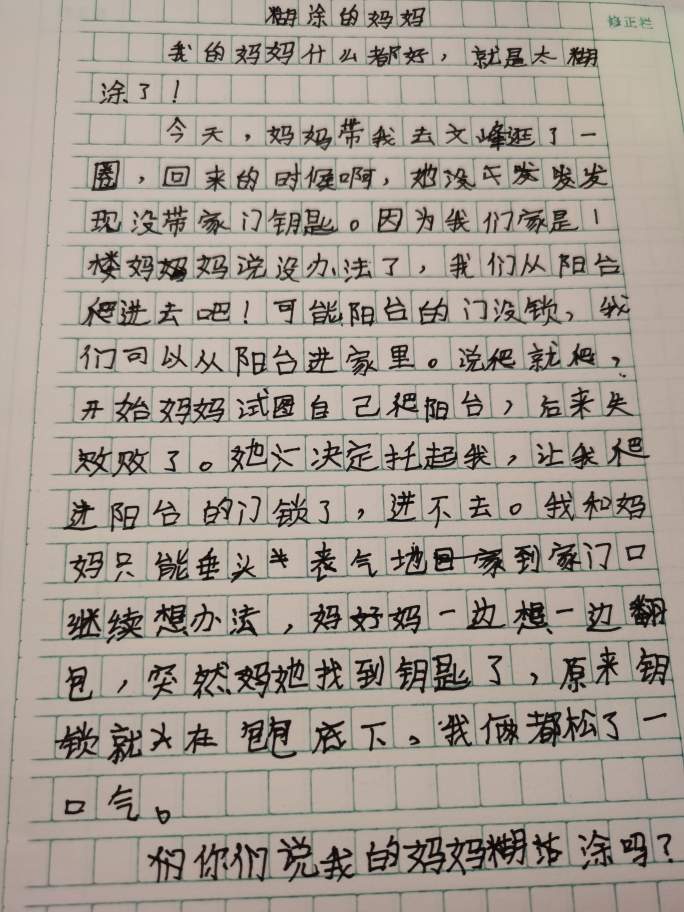 糊涂的妈妈
修正栏
我的妈妈什么都好，就是太糊
涂了！
今天，妈妈带我去文峰逛了一
圈，回来的时候啊，她没发发发
现没带家门钥匙。因为我们家是1
楼妈妈妈说没办法了，我们从阳台
爬进去吧！可能阳台的门没锁，我
们可以从阳台进家里。说爬就爬，
开始妈妈试图自己爬阳台，后来失
败败了。她决定托起我，让我爬
进阳台的门锁了，进不去。我和妈
妈只能垂头丧气地到家门口
继续想办法，妈好妈一边想一边翻
包，突然妈她找到钥匙了，原来钥
锁就在包底下。我俩都松了一
口气。
们你们说我的妈妈糊涂吗？